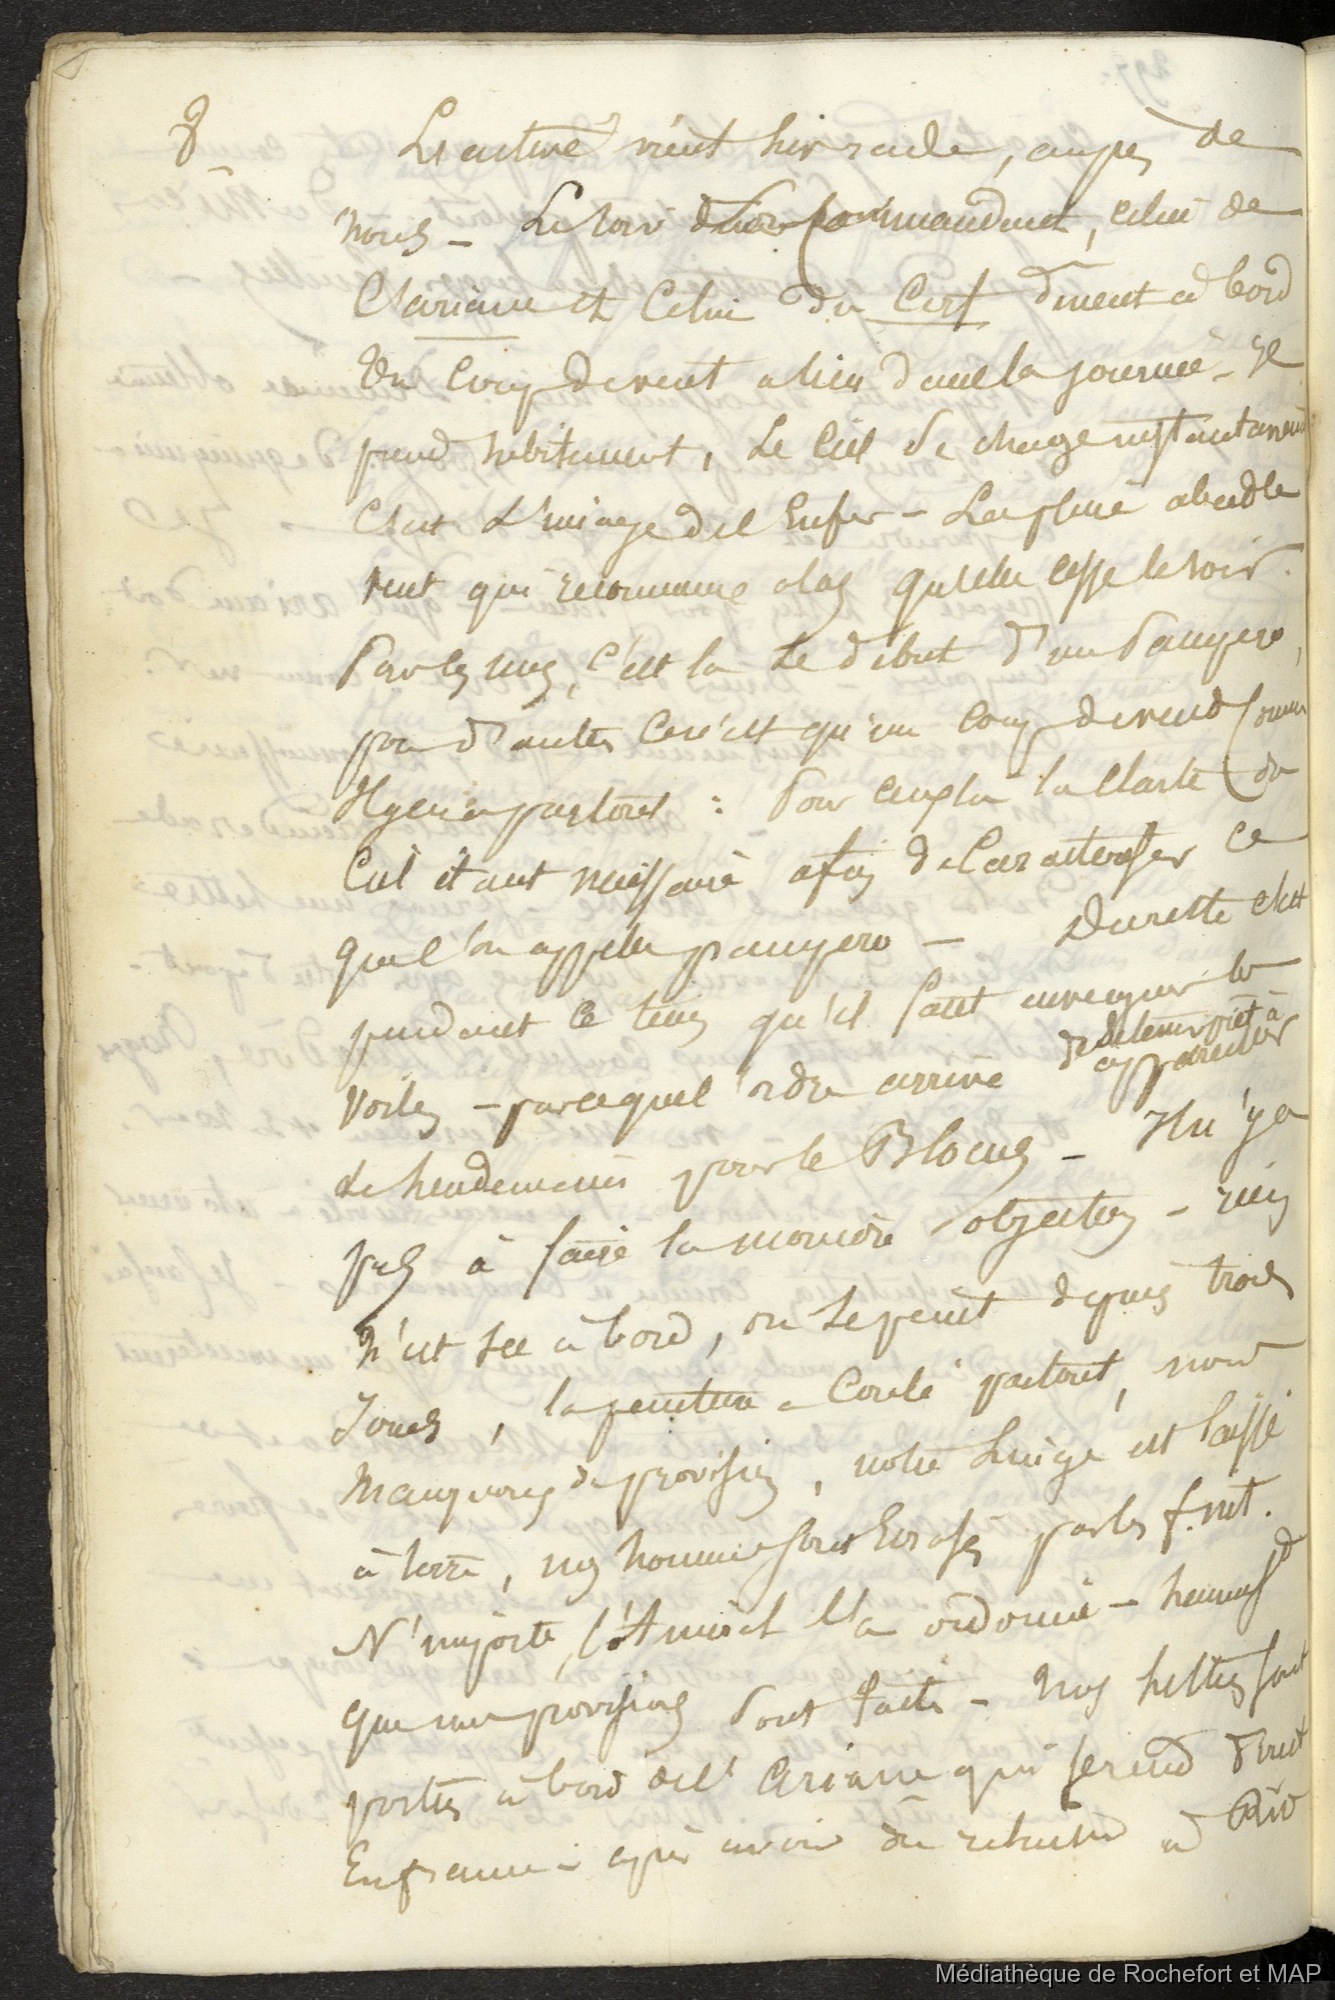 8_ L'active vient sur rade, auprès de
nous _ Le soir commandant, celui de
l'ariane et celui du Cerf dinent à bord
Un coup de vent a lieu dans la journée _ Il
prend subitement, Le Ciel se charge
C'est L'image de l'Enfer _ La pluie
vent qui recommence qu'elle cesse le soir.
Pour les uns, c'est la Le début d'un Pampero,
pour d'autres Ce n'est qu'un coup de vent comme
Il y en a partout : Pour ceux la la Clarté du
Ciel étant nécessaire afin de Caractériser ce
que l'on appelle pampero _ Du reste c'est
pendant ce tems qu'il faut enverguer les
voiles _ parceque l'ordre arrive de se tenir prêt à
appareiller
le lendemain pour le Blocus _ Il n'y a
pas à faire la moindre objection _ rien
n'est sec à bord, on Le peint depuis trois
Jours, la peinture a Coulé partout, nous
Manquons de provisions, notre Linge est laissé
à terre, nos hommes sont Ecrasés par les
N'importe, l'Amiral l'a ordonné _
que nos provisions sont faites _ Nos lettres sont
portées à bord de l'Ariane qui se rend
En france après avoir à Rio
Médiathèque de Rochefort et MAP